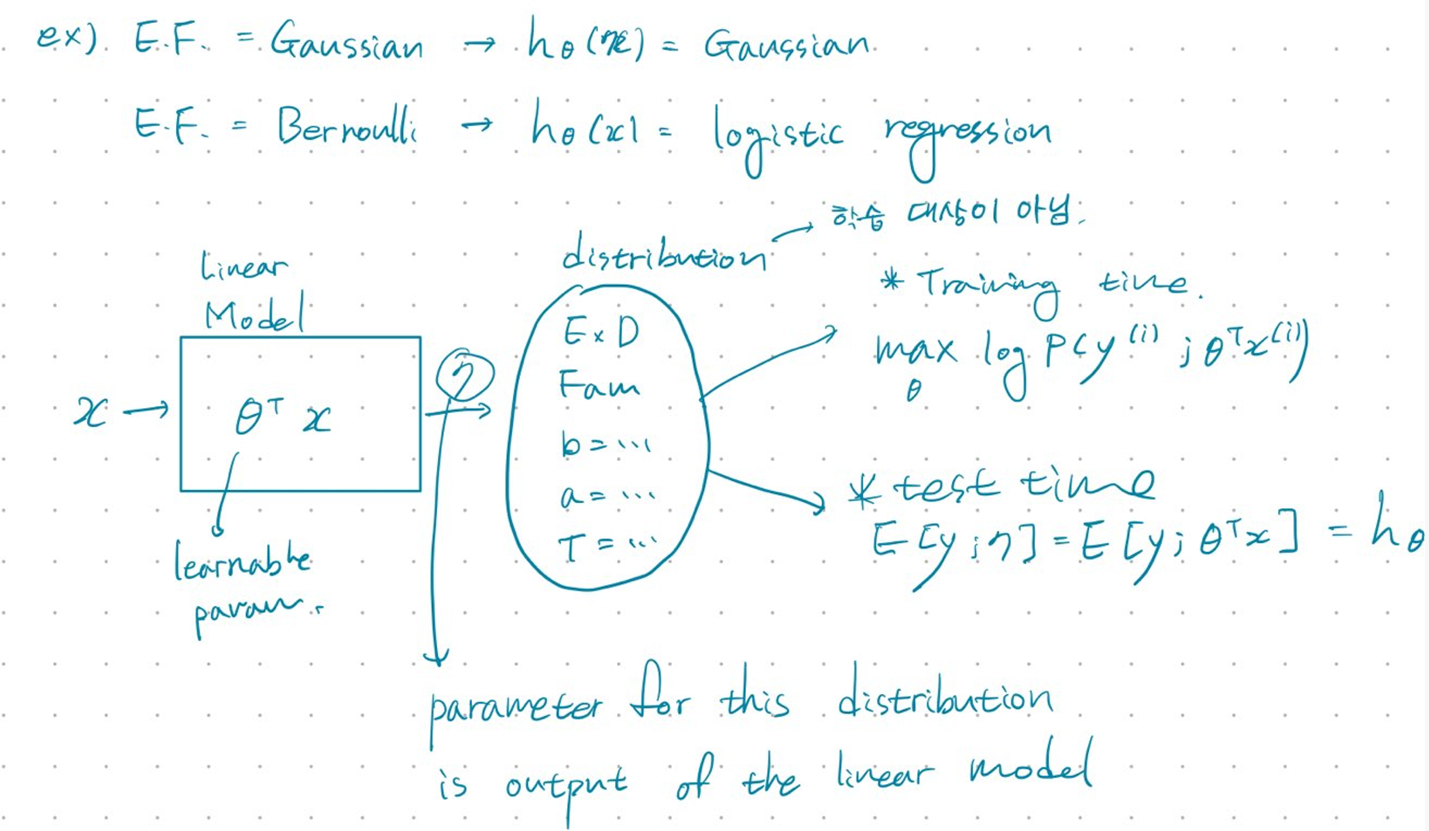 ex). E.F. = Gaussian → hθ(x) = Gaussian.
E.F. = Bernoulli → hθ(x) = logistic regression
Linear
Model
x → θᵀx
learnable
param.
η
distribution → 학습 대상이 아님.
Exp
Fam
b = ...
a = ...
T = ...
* Training time.
max log P(y⁽ⁱ⁾ ; θᵀx⁽ⁱ⁾)
θ
* test time
E[y;η] = E[y; θᵀx] = hθ
parameter for this distribution
is output of the linear model